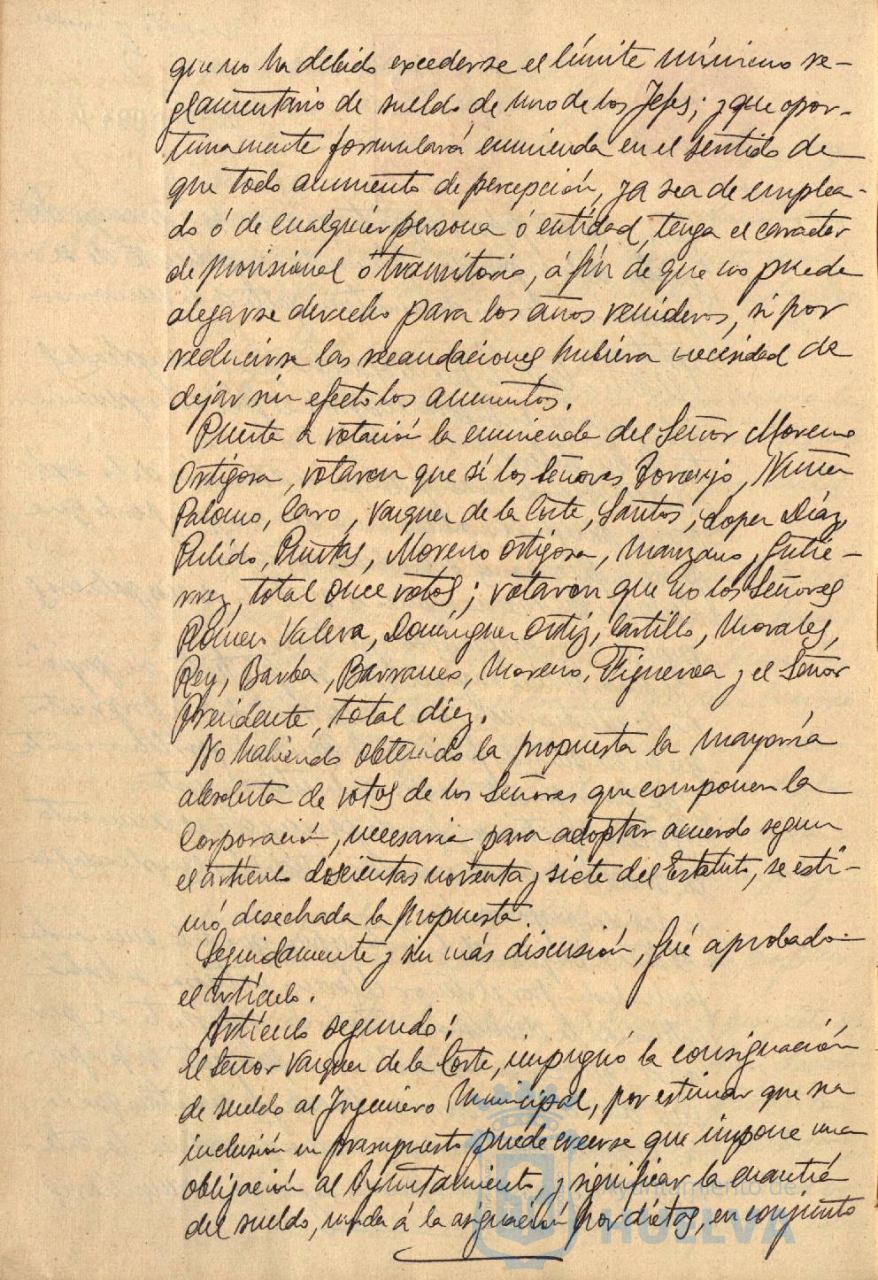 que no ha debido excederse el límite mínimo re-
glamentario de sueldo de uno de los Jefes; y que opor-
tunamente formulará enmienda en el sentido de
que todo aumento de percepción, ya sea de emplea-
do ó de cualquier persona ó entidad, tenga el caracter
de provisional ó transitorio, á fin de que no puede
alegarse derecho para los años venideros, si por
reducirse las recaudaciones hubiera necesidad de
dejar sin efecto los aumentos.
Puesta a votación la enmienda del Señor Moreno
Ortigosa, votaron que sí los Señores Toreijo, Nuñez
Palomo, Caro, Vazquez de la Corte, Santos, Lopez Díaz,
Pulido, Puntas, Moreno Ortigosa, Manzano, Gutié-
rrez, total once votos; votaron que no los Señores
Romero Valera, Domínguez Ortiz, Castillo, Morales,
Rey, Barba, Barranco, Moreno, Figueroa y el Señor
Presidente, total diez.
No habiendo obtenido la propuesta la mayoría
absoluta de votos de los Señores que componen la
Corporación, necesaria para adoptar acuerdo segun
el artículo doscientos noventa y siete del Estatuto, se esti-
mó desechada la propuesta.
Seguidamente y sin más discusión, fué aprobado
el artículo.
Artículo segundo:
El Señor Vazquez de la Corte, impugnó la consignación
de sueldo al Ingeniero Municipal, por estimar que su
inclusión en presupuesto puede creerse que impone una
obligación al Ayuntamiento, y significar la cuantía
del sueldo, unida á la asignación por dietas, en conjunto
Ayuntamiento de
HUELVA